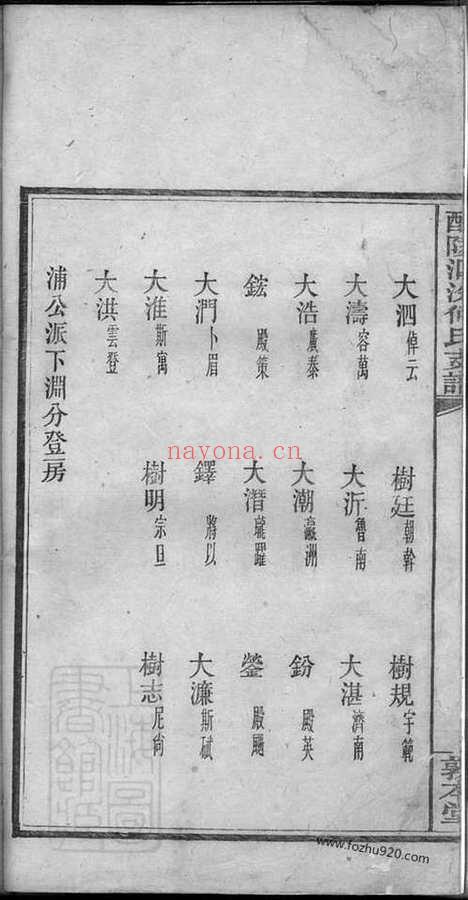 大泗倬云 樹廷朝幹 樹規宇範
大濤容萬 大沂魯南 大湛濟南
大浩廣泰 大潮瀛洲 鈖殿英
鉉殿策 大潛龍躍 鎣殿颺
大潤卜眉 鐸將以 大濂斯斌
大淮斯寓 樹明宗旦 樹志尼尙
大洪雲登
浦公派下淵分登一房
敦本堂
nayona.cn
www.fozhu920.com